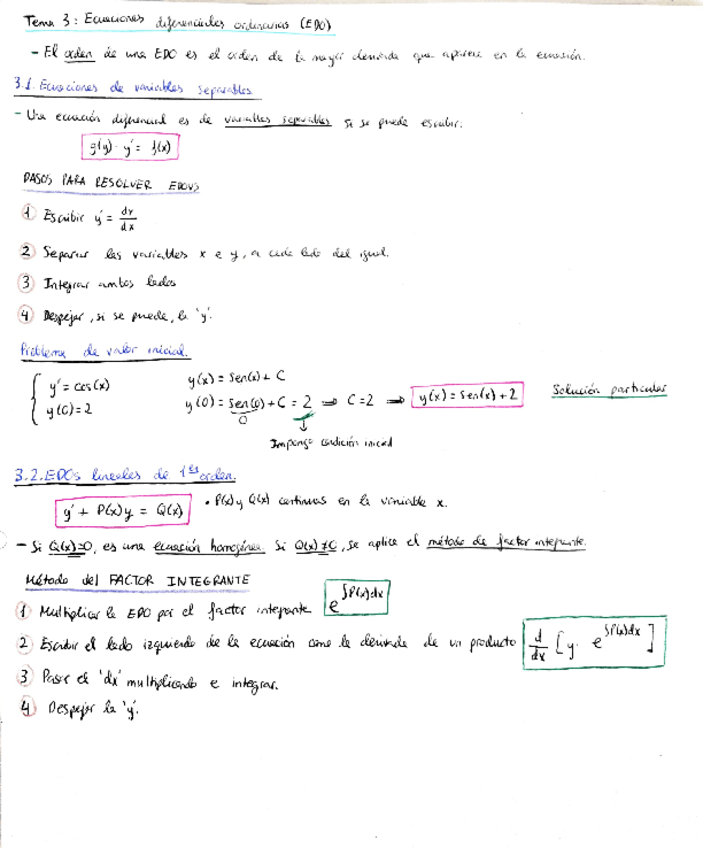 Tema 3: Ecuaciones diferenciales ordinarias (EDO)
- El orden de una EDO es el orden de la mayor derivada que aparece en la ecuación.
3.1. Ecuaciones de variables separables
- Una ecuación diferencial es de variables separables si se puede escribir:
g(y) · y' = f(x)
PASOS PARA RESOLVER EDOVS
1 Escribir y' = dy/dx
2 Separar las variables x e y, a cada lado del igual.
3 Integrar ambos lados
4 Despejar, si se puede, la 'y'.
Problema de valor inicial.
{ y' = cos(x) y(x) = sen(x) + C
y(0) = 2 y(0) = sen(0) + C = 2 ⇒ C = 2 ⇒ y(x) = sen(x) + 2 Solución particular
0 ↓
Impongo condición inicial
3.2. EDOs lineales de 1er orden.
y' + P(x)y = Q(x) • P(x) y Q(x) continuas en la variable x.
- Si Q(x)=0, es una ecuación homogénea. Si Q(x) ≠ 0, se aplica el método de factor integrante.
Método del FACTOR INTEGRANTE
1 Multiplicar la EDO por el factor integrante e^∫P(x)dx
2 Escribir el lado izquierdo de la ecuación como la derivada de un producto d/dx [y · e^∫P(x)dx]
3 Pasar el 'dx' multiplicando e integrar.
4 Despejar la 'y'.